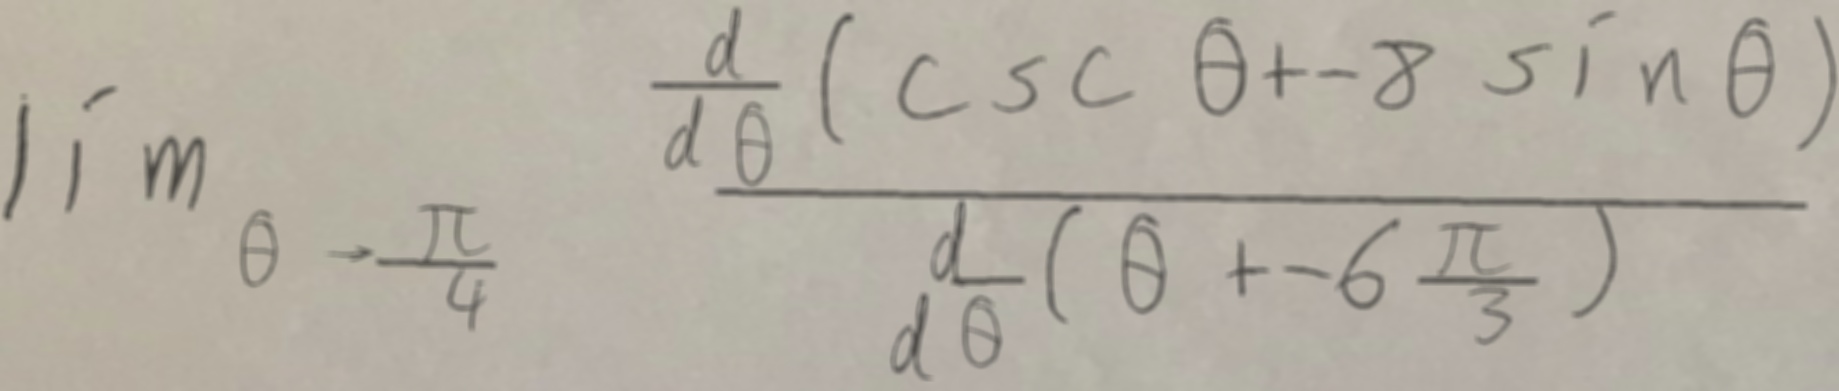 \lim_{\theta \to \frac{\pi}{4}} \frac{\frac{d}{d\theta}(\csc \theta + -8 \sin \theta)}{\frac{d}{d\theta}(\theta + -6 \frac{\pi}{3})}